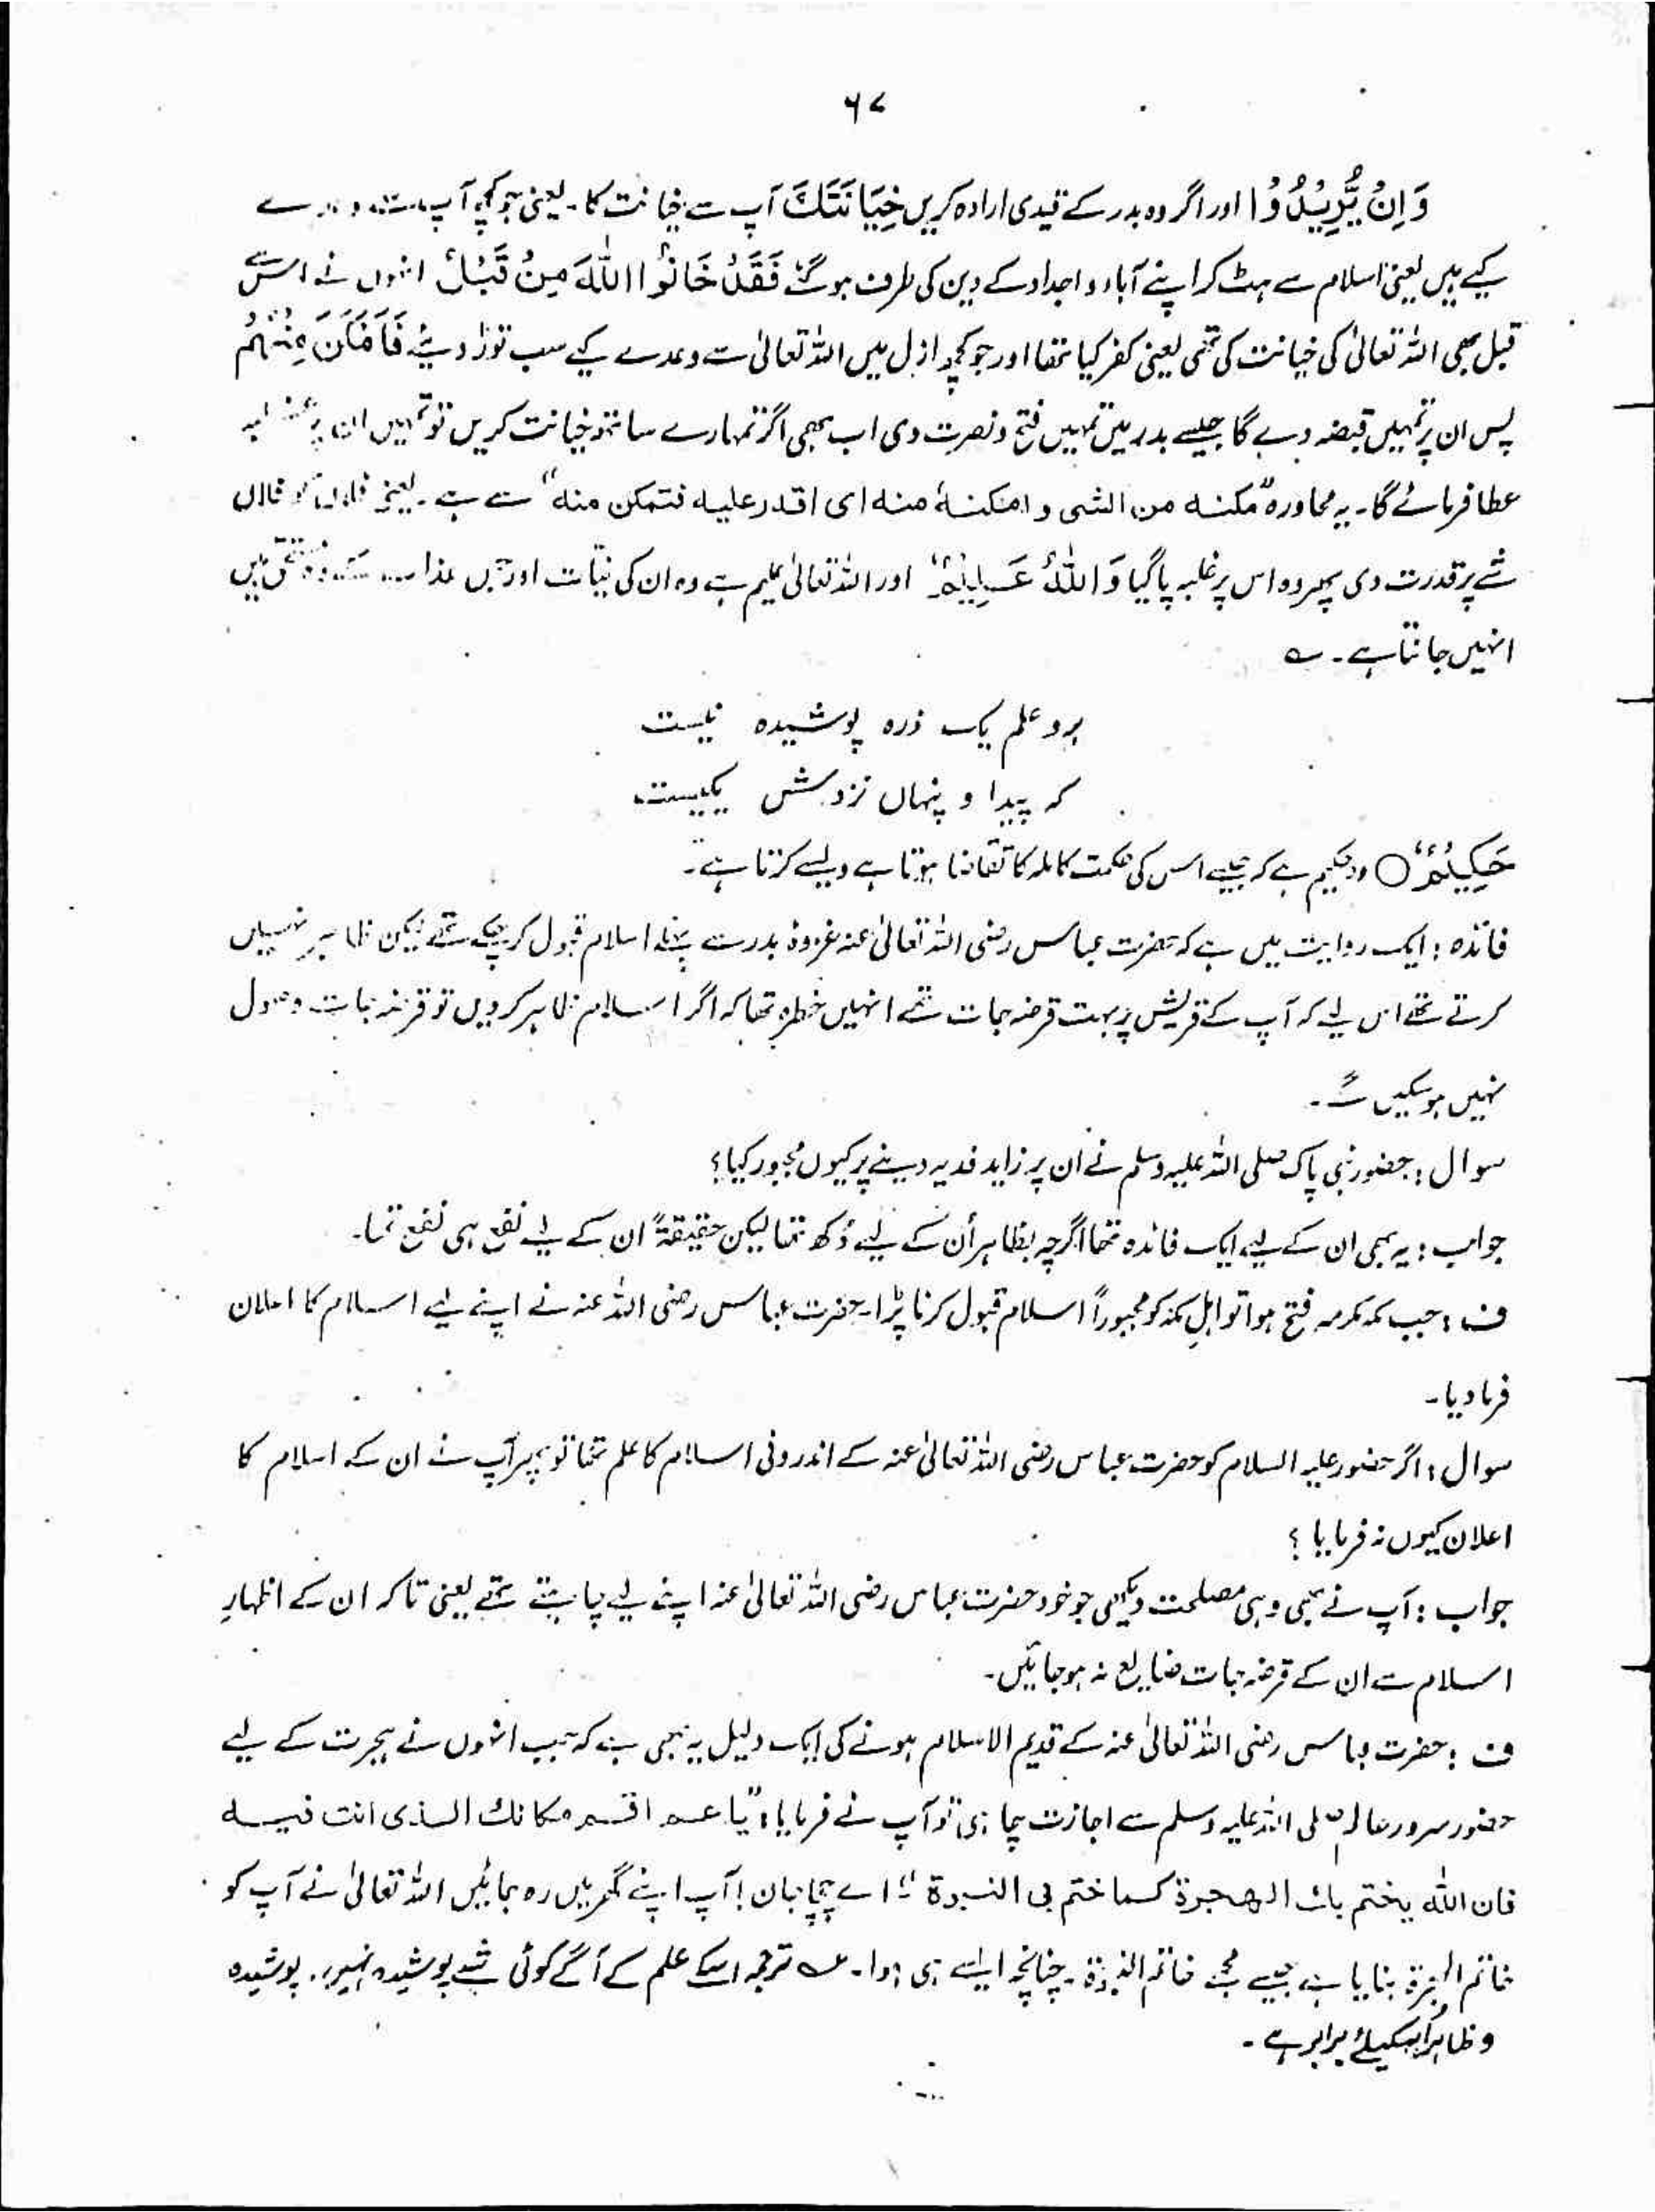 ۶۷
وَاِنْ یُّرِیْدُوْا اور اگر وہ بدر کے قیدی ارادہ کریں خِیَانَتَكَ آپ سے خیانت کا۔ یعنی جو کچھ آپ سے وعدے
کیے ہیں یعنی اسلام سے ہٹ کر اپنے آباء و اجداد کے دین کی طرف ہو گئے فَقَدْ خَانُوا اللّٰهَ مِنْ قَبْلُ انہوں نے اس سے
قبل بھی اللہ تعالیٰ کی خیانت کی تھی یعنی کفر کیا تھا اور جو کچھ ازل میں اللہ تعالیٰ سے وعدے کیے سب توڑ دیئے فَاَمْكَنَ مِنْهُمْ
پس ان پر تمہیں قبضہ دے گا جیسے بدر میں تمہیں فتح و نصرت دی اب بھی اگر تمہارے ساتھ خیانت کریں تو تمہیں ان پر غلبہ
عطا فرمائے گا۔ یہ محاورہ "مكنه من الشی و امكنهٗ منه ای اقدر علیه فتمكن منه" سے ہے۔ یعنی فلاں کو فلاں
شے پر قدرت دی پھر وہ اس پر غلبہ پا گیا وَاللّٰهُ عَلِیْمٌ اور اللہ تعالیٰ علیم ہے وہ ان کی نیات اور جس عذاب کے وہ مستحق ہیں
انہیں جانتا ہے۔ ؎
برو علم یک ذرہ پوشیدہ نیست
کہ پیدا و پنہاں نزدش یکیست
حَكِیْمٌ ○ وہ حکیم ہے کہ جیسے اس کی حکمت کاملہ کا تقاضا ہوتا ہے ویسے کرتا ہے۔
فائدہ : ایک روایت میں ہے کہ حضرت عباس رضی اللہ تعالیٰ عنہ غزوۂ بدر سے پہلے اسلام قبول کر چکے تھے لیکن ظاہر نہیں
کرتے تھے اس لیے کہ آپ کے قریش پر بہت قرضہ جات تھے انہیں خطرہ تھا کہ اگر اسلام ظاہر کر دیں تو قرضہ جات وصول
نہیں ہو سکیں گے۔
سوال : حضور نبی پاک صلی اللہ علیہ وسلم نے ان پر زاید فدیہ دینے پر کیوں مجبور کیا؟
جواب : یہ بھی ان کے لیے ایک فائدہ تھا اگرچہ بظاہر اُن کے لیے دُکھ تھا لیکن حقیقۃً ان کے لیے نفع ہی نفع تھا۔
ف : جب مکہ مکرمہ فتح ہوا تو اہلِ مکہ کو مجبوراً اسلام قبول کرنا پڑا۔ حضرت عباس رضی اللہ عنہ نے اپنے لیے اسلام کا اعلان
فرما دیا۔
سوال : اگر حضور علیہ السلام کو حضرت عباس رضی اللہ تعالیٰ عنہ کے اندرونی اسلام کا علم تھا تو پھر آپ نے ان کے اسلام کا
اعلان کیوں نہ فرمایا ؟
جواب : آپ نے بھی وہی مصلحت دیکھی جو خود حضرت عباس رضی اللہ تعالیٰ عنہ اپنے لیے چاہتے تھے یعنی تاکہ ان کے اظہارِ
اسلام سے ان کے قرضہ جات ضایع نہ ہو جائیں۔
ف : حضرت عباس رضی اللہ تعالیٰ عنہ کے قدیم الاسلام ہونے کی ایک دلیل یہ بھی ہے کہ جب انہوں نے ہجرت کے لیے
حضور سرور عالم صلی اللہ علیہ وسلم سے اجازت چاہی تو آپ نے فرمایا : "یا عم اقم مكانك الذی انت فیه
فان اللّٰه یختم بك الهجرة كما ختم بی النبوة" اے چچا جان ! آپ اپنے گھر میں رہ جائیں اللہ تعالیٰ نے آپ کو
خاتم الہجرۃ بنایا ہے جیسے مجھے خاتم النبوۃ۔ چنانچہ ایسے ہی ہوا۔ ؎ ترجمہ اسکے علم کے آگے کوئی شے پوشیدہ نہیں، پوشیدہ
و ظاہر اسکیلئے برابر ہے۔